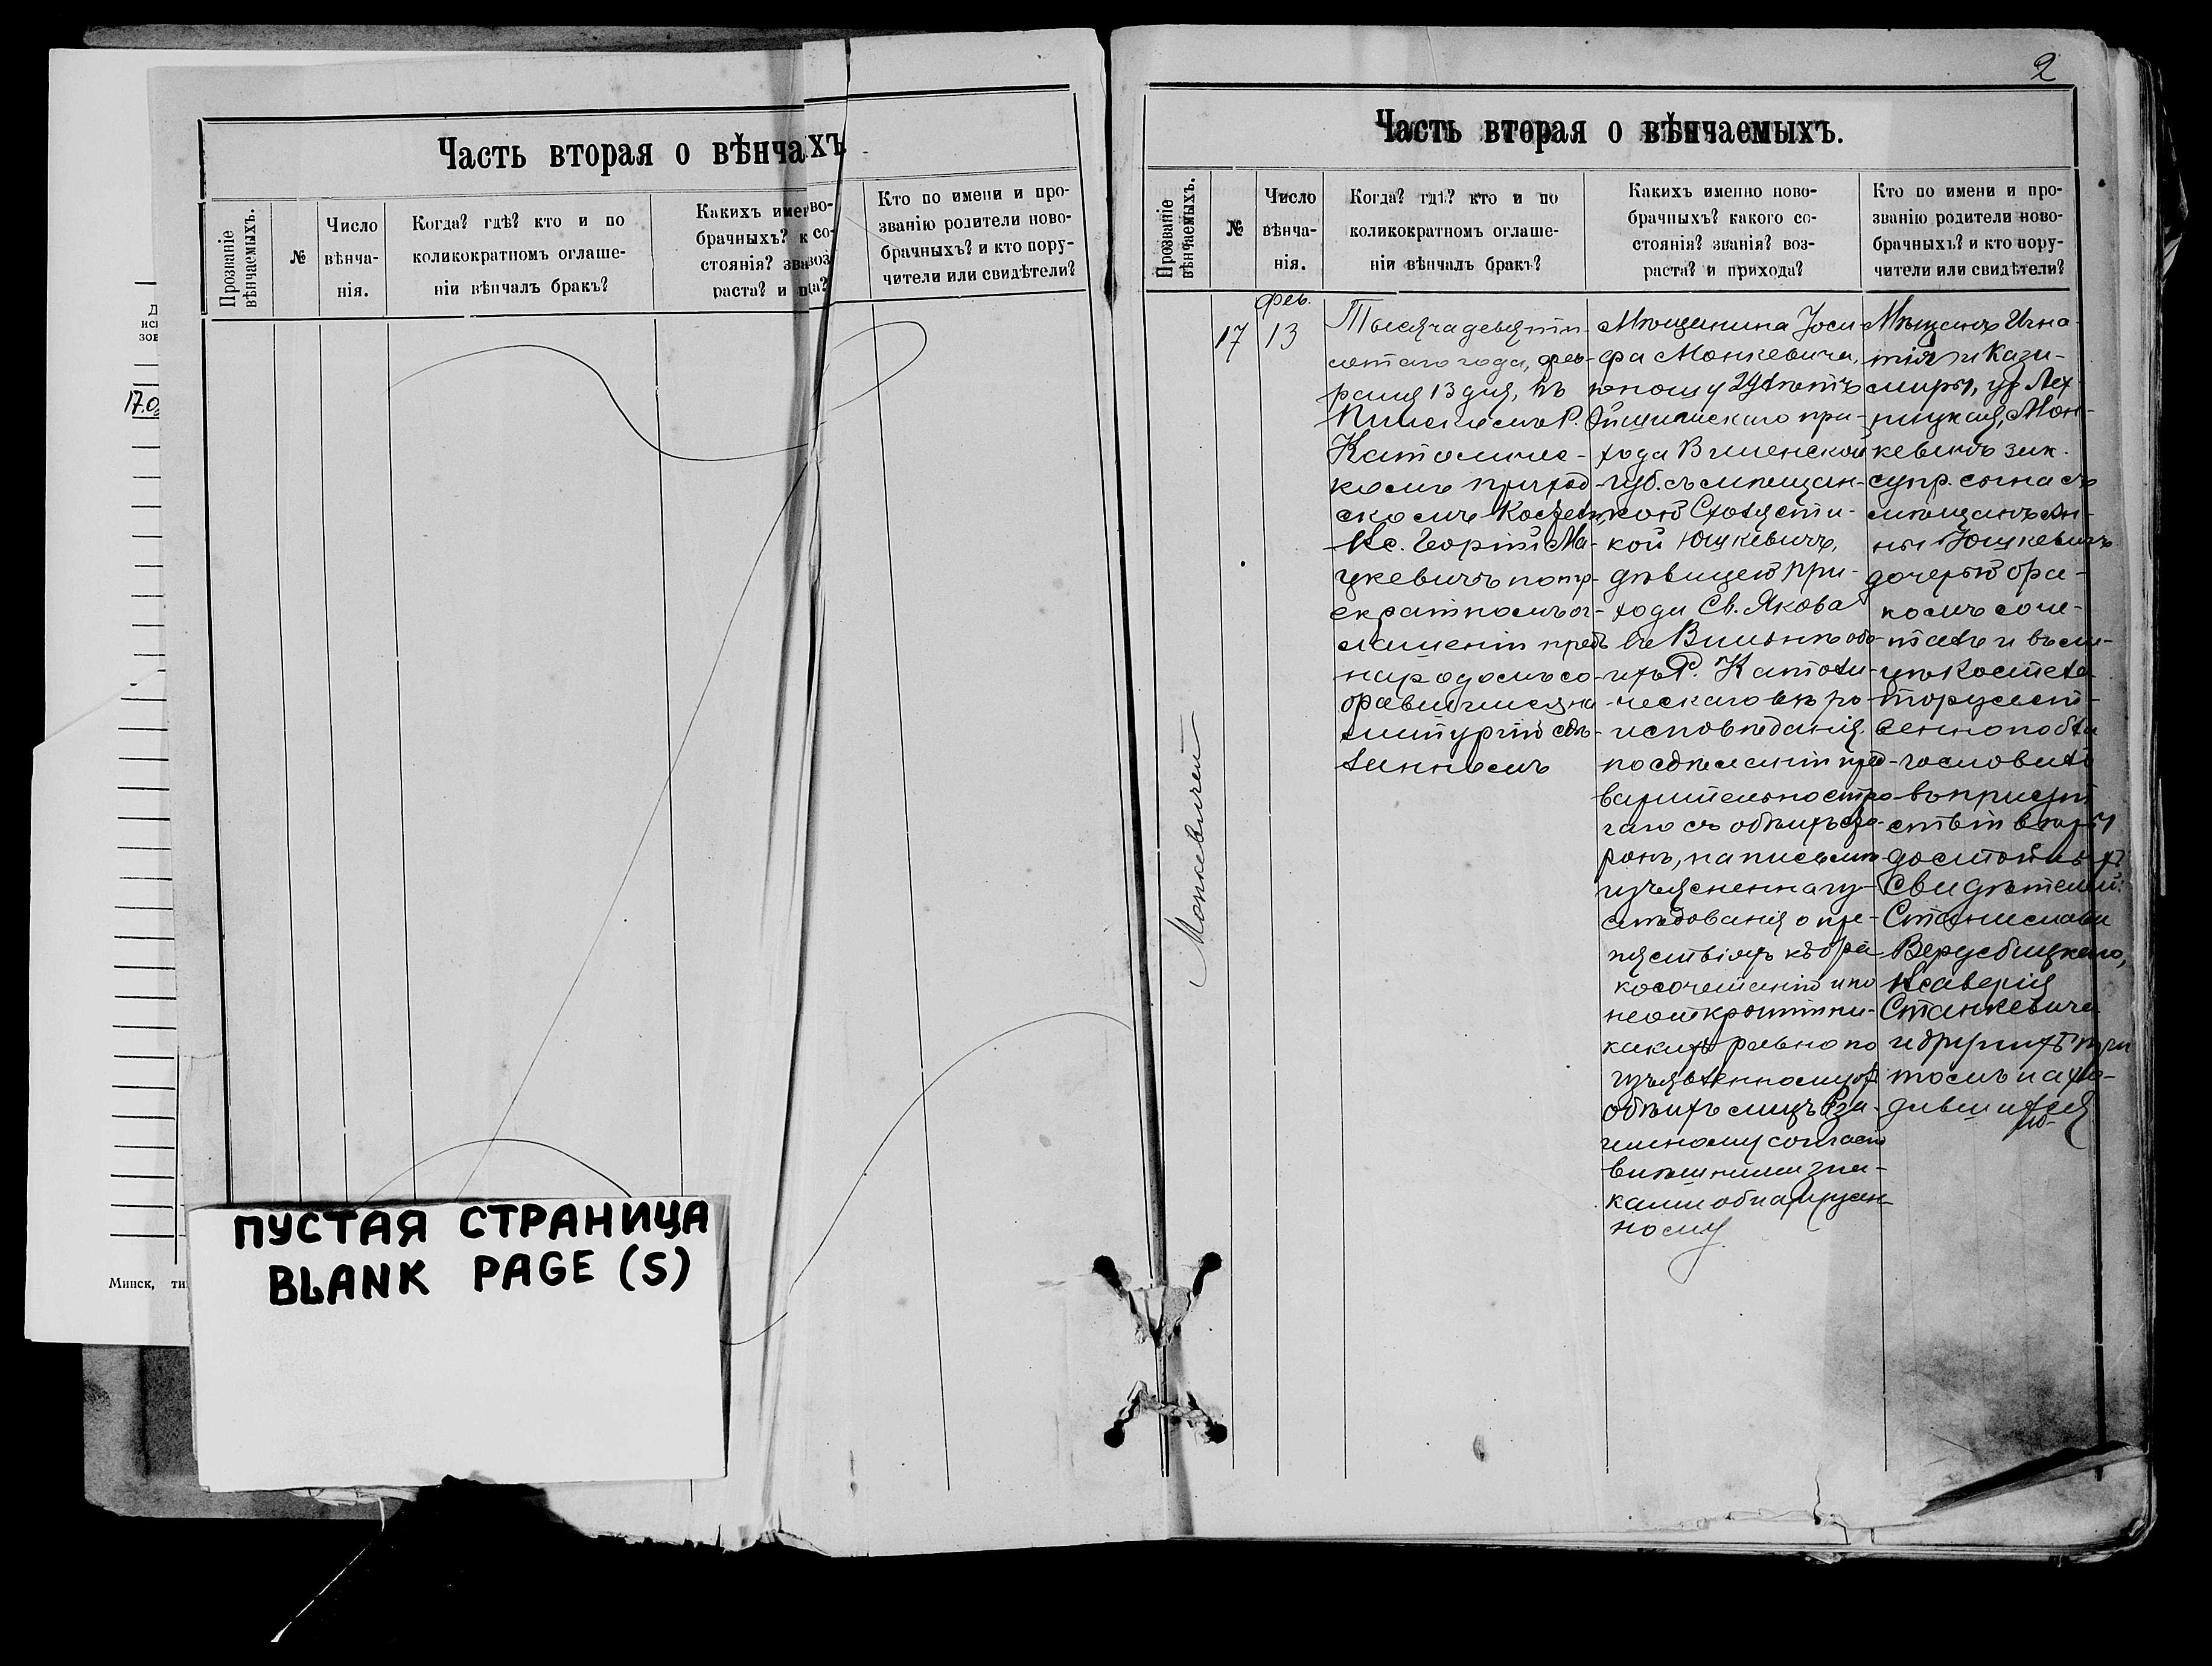 2
Часть вторая о вѣнча
хъ
Прозваніе
вѣнчаемыхъ.
№
Число
вѣнча-
нія.
Когда? гдѣ? кто и по
коликократномъ оглаше-
ніи вѣнчалъ бракъ?
Каихъ
брачныхъ?
стоянія?
раста? и
Кто по имени и про-
званію родители ново-
брачныхъ? и кто пору-
чители или свидѣтели?
17.0
Минск,
ПУСТАЯ СТРАНИЦА
BLANK PAGE (S)
Часть вторая о вѣнчаемыхъ.
Прозваніе
вѣнчаемыхъ.
№
Число
вѣнча-
нія.
Когда? гдѣ? кто и по
коликократномъ оглаше-
ніи вѣнчалъ бракъ?
Какихъ именно ново-
брачныхъ? какого со-
стоянія? званія? воз-
раста? и прихода?
Кто по имени и про-
званію родители ново-
брачныхъ? и кто пору-
чители или свидѣтели?
Монкевичей
17
фев.
13
Тысяча девятьи-
сотаго года, фев-
раля 13 дня, въ
Р.
Католичес-
комъ приход-
скомъ Костелѣ,
Кс. Георгій Ма-
цкевичъ по тр-
екратномъ ог-
лашеніи предъ
народомъ со-
бравшимся на
литургію
Мѣщанина Іоси-
фа Монкевича,
юношу лѣтъ
при-
хода Виленской
губ. съ мѣщан-
кою Схоласти-
кой Юшкевичъ,
дѣвицею при-
хода Св. Якова
въ Вильнѣ обо-
ихъ Р. Католи-
ческаго вѣро-
исповѣданія,
по сдѣланіи пред-
варительно стро-
гаго съ обѣихъ сто-
ронъ, на письмѣ
изъясненнаго из-
слѣдованія о пре-
пятствіяхъ къ бра-
косочетанію и по
неоткрытіи ни-
какихъ равно по
изъявленному отъ
обѣихъ лицъ вза-
имному согласію
внѣшними зна-
ками обнаружен-
ному
Мѣщанъ Игна-
тія и Кази-
миры, ур. Лех-
ницкая, Мон-
кевичъ зак.
супр. сына съ
мѣщанъ Ан-
ны Юшкевичъ
дочерью бра-
комъ соче-
талъ и въ ли-
цѣ Костела
торжест-
венно побла-
гословилъ
въ присут-
ствіи вѣры
достойныхъ
свидѣтелей:
Станислава
Ксаверія
Станкевича
и другихъ при
томъ нахо-
дившихся